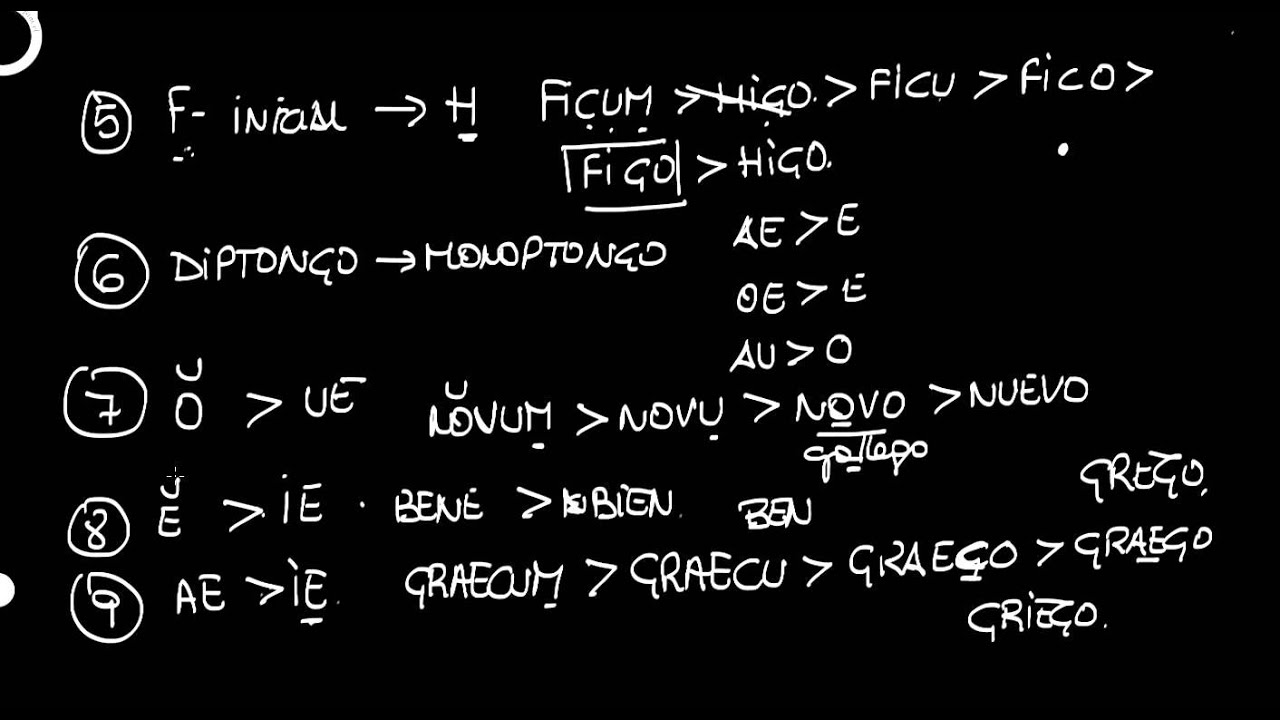 5 F- inicial → H FICUM > HIGO. > FICU > FICO >
FIGO > HIGO.
AE > E
6 DIPTONGO → MONOPTONGO
OE > E
AU > O
7 Ŏ > UE NŎVUM > NOVU > NOVO > NUEVO
gallego
GREGO.
8 Ĕ > IE . BENE > BIEN. BEN
9 AE > IE. GRAECUM > GRAECU > GRAEGO > GRAEGO
GRIEGO.